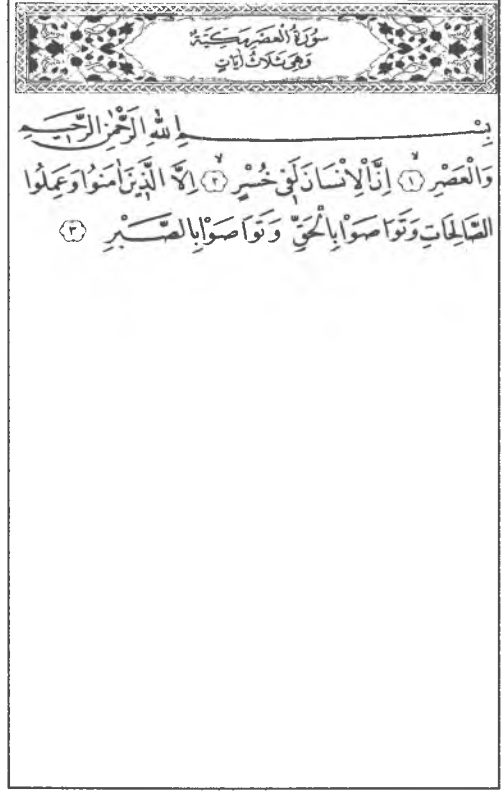 سُورَةُ الْعَصْرِ مَكِّيَّةٌ
وَهِيَ ثَلَاثُ اٰيَاتٍ
بِسْمِ اللّٰهِ الرَّحْمٰنِ الرَّحِيمِ
وَالْعَصْرِۙ ﴿١﴾ اِنَّ الْاِنْسَانَ لَفِي خُسْرٍۙ ﴿٢﴾ اِلَّا الَّذِينَ اٰمَنُوا وَعَمِلُوا
الصَّالِحَاتِ وَتَوَاصَوْا بِالْحَقِّ وَتَوَاصَوْا بِالصَّبْرِ ﴿٣﴾